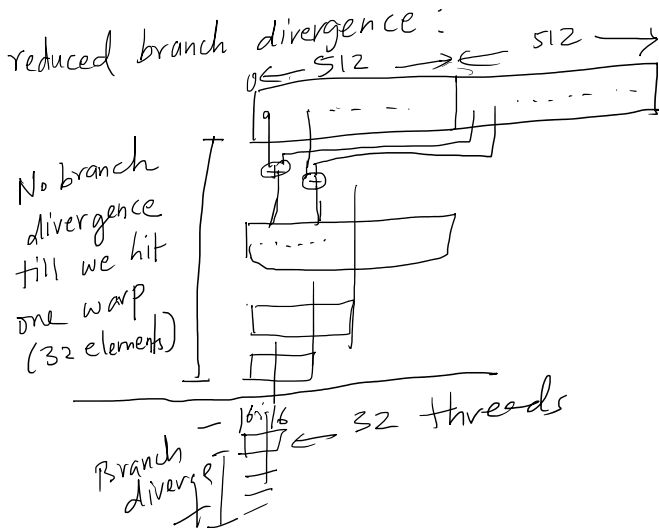 reduced branch divergence :
0 512 512
No branch
divergence
till we hit
one warp
(32 elements)
16 16
32 threads
Branch
diverge